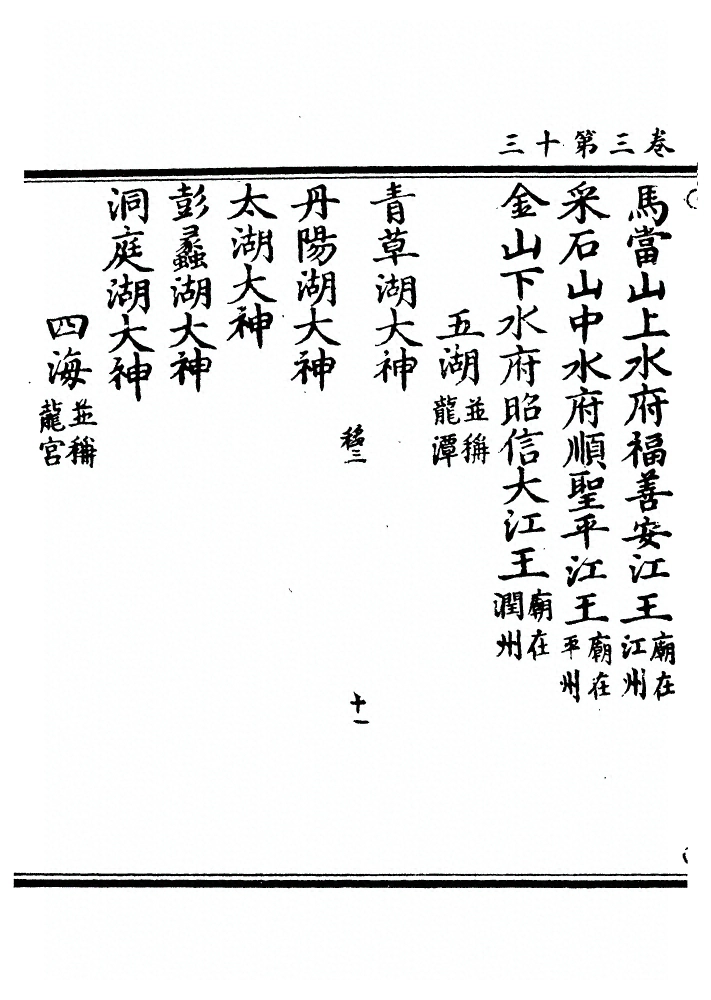 卷三第十三
馬當山上水府福善安江王廟在江州
采石山中水府順聖平江王廟在平州
金山下水府昭信大江王廟在潤州
五湖並稱龍潭
青草湖大神
十一
丹陽湖大神
太湖大神
彭蠡湖大神
洞庭湖大神
四海並稱龍宮